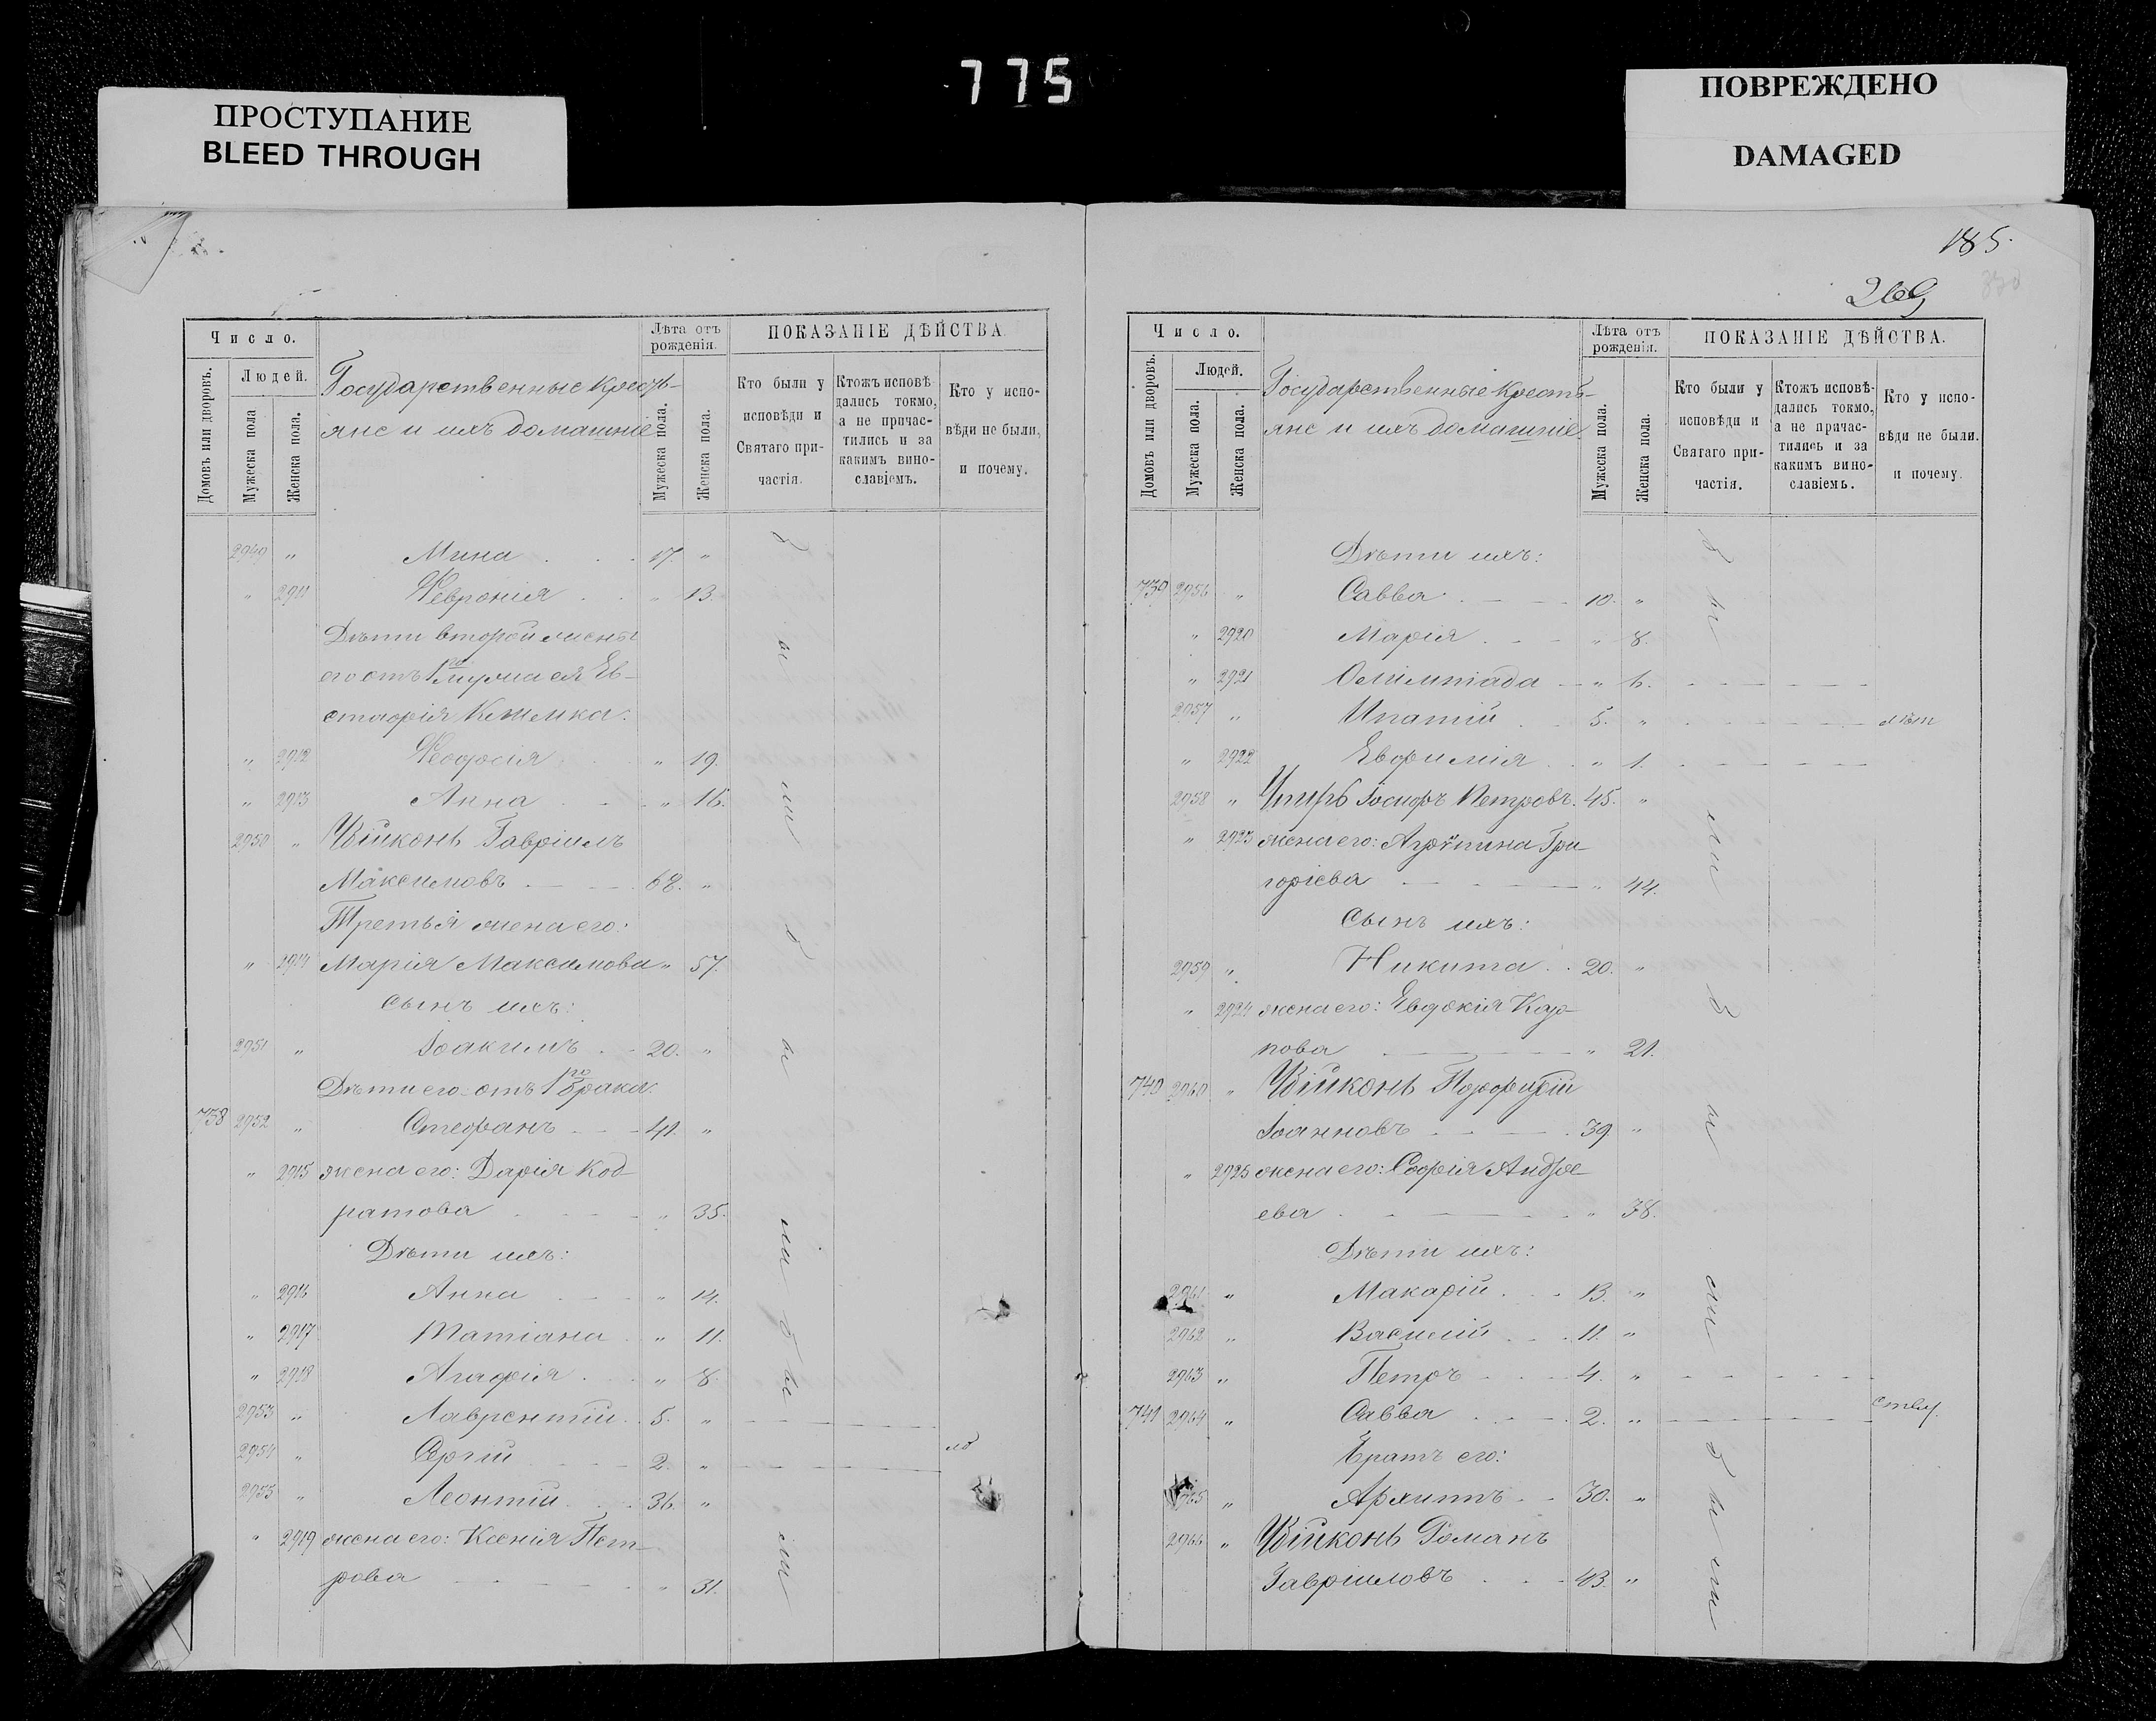 775
ПРОСТУПАНИЕ
BLEED THROUGH
ПОВРЕЖДЕНО
DAMAGED
Число.
Домовъ или дворовъ.
Людей.
Мужеска пола
Женска пола.
Государственные кресть-
яне и ихъ домашніе
Лѣта отъ рожденія.
Мужеска пола.
Женска пола.
ПОКАЗАНІЕ ДѢЙСТВА.
Кто были у исповѣди и Святаго при-частія.
Ктожъ исповѣ-дались токмо, а не причас-тились и за какимъ вино-славіемъ.
Кто у испо-вѣди не были, и почему.
2949 „ Мина 17. „
„ 2911 Февронія „ 13.
Дѣти второй жены
его отъ 1го мужа ея Ев-
стафія
„ 2912 Феодосія „ 19.
„ 2913 Анна „ 16.
2950 „ Гавріилъ
Максимовъ 68. „
Третья жена его:
„ 2914 Марія Максимова „ 57.
Сынъ ихъ:
2951 „ Іоакимъ 20. „
Дѣти его отъ 1го брака:
738 2952 „ Стефанъ 41. „
„ 2915 жена его: Дарія Код-
ратова „ 35.
Дѣти ихъ:
„ 2916 Анна „ 14.
„ 2917 Татіана „ 11.
„ 2918 Агафія „ 8.
2953 „ Лаврентій 5. „
2954 „ Сергій 2. „
2955 „ Леонтій 36. „
„ 2919 жена его: Ксенія Пет-
рова „ 31.
были
были
были
185.
269
Число.
Домовъ или дворовъ.
Людей.
Мужеска пола.
Женска пола.
Государственные кресть-
яне и ихъ домашніе.
Лѣта отъ рожденія.
Мужеска пола.
Женска пола.
ПОКАЗАНІЕ ДѢЙСТВА.
Кто были у исповѣди и Святаго при-частія.
Ктожъ исповѣ-дались токмо, а не причас-тились и за какимъ вино-славіемъ.
Кто у испо-вѣди не были. и почему.
Дѣти ихъ:
739 2956 „ Савва 10. „
„ 2920 Марія „ 8.
„ 2921 Олимпіада „ 6.
2957 „ Ипатій 5. „
„ 2922 Евфимія „ 1.
2958 „ Іосифъ Петровъ. 45. „
„ 2923 жена его: Агрипина Гри-
горіева „ 44.
Сынъ ихъ:
2959 „ Никита 20. „
„ 2924 жена его: Евдокія Кар-
пова „ 21.
740 2960 „ Порфирій
Іоанновъ 39. „
„ 2925 жена его: Софія Андре-
ева „ 38.
Дѣти ихъ:
2961 „ Макарій 13. „
2962 „ Василій 11. „
2963 „ Петръ 4. „
741 2964 „ Савва 2. „
Братъ его:
„ Архипъ 30. „
2966 „ Романъ
Гавріиловъ 43. „
были
были
были